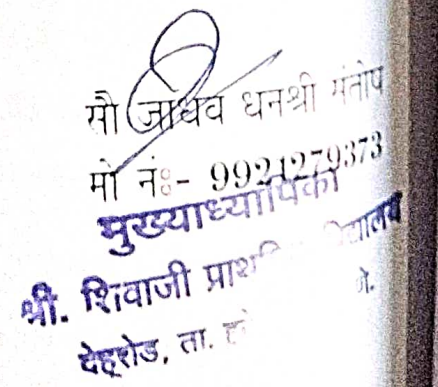 सौ जाधव धनश्री संतोष
मो नंः- 9921279373
मुख्याध्यापिका
श्री. शिवाजी
देहूरोड, ता.